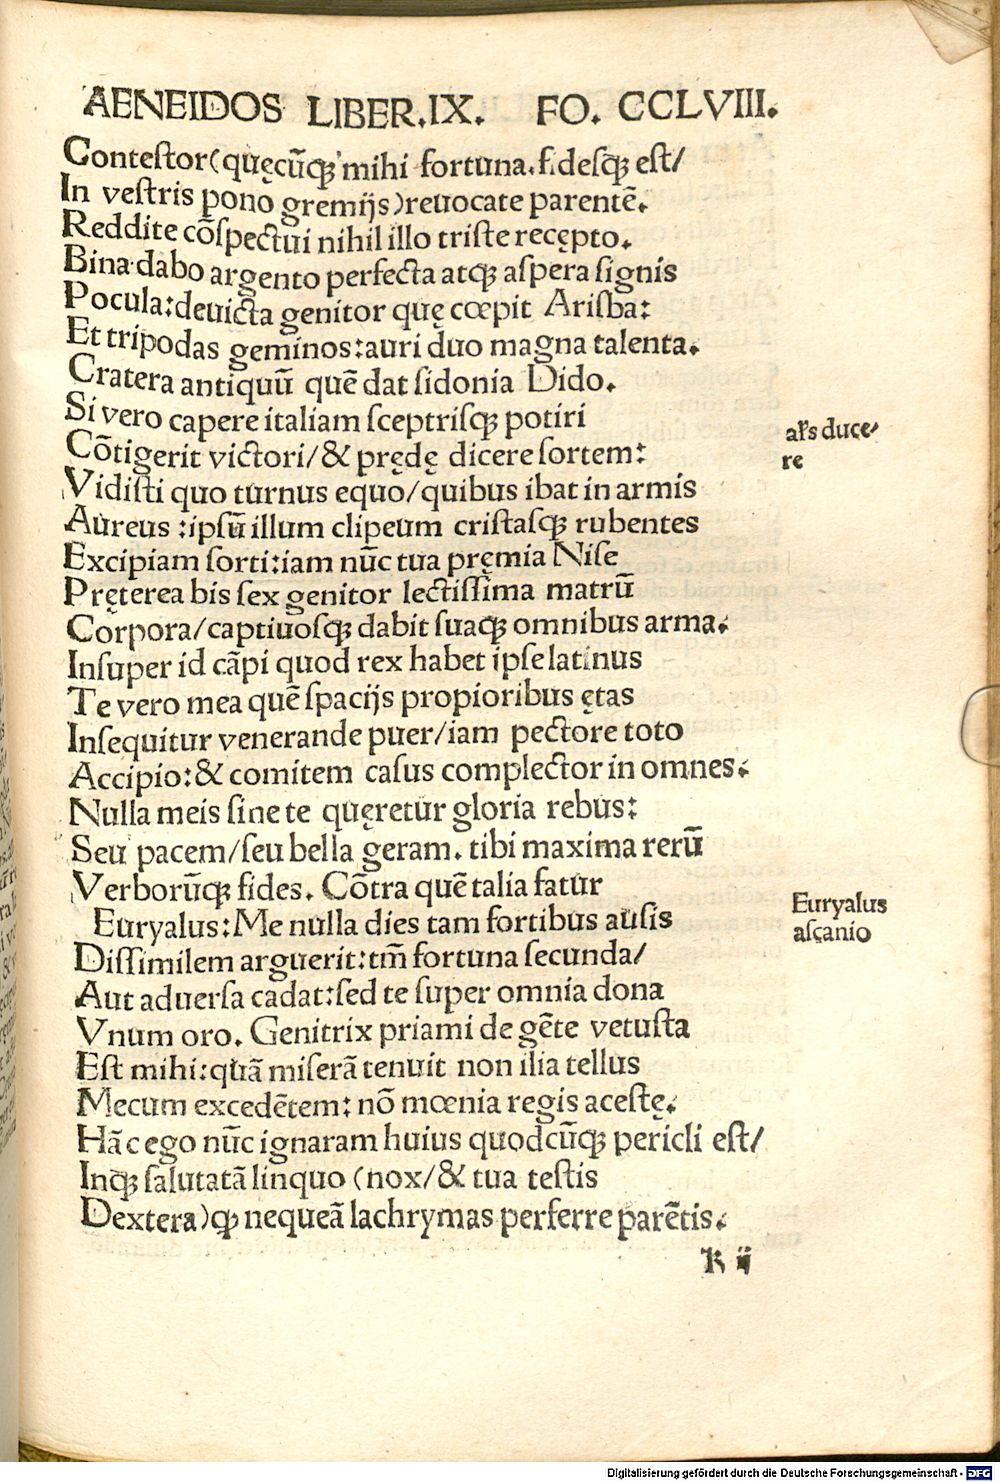 AENEIDOS LIBER.IX. FO. CCLVIII.
Contestor(quęcūq̃ mihi fortuna.fidesq̃ est/
In vestris pono gremijs)reuocate parentē.
Reddite cōspectui nihil illo triste recępto.
Bina dabo argento perfecta atq̃ aspera signis
Pocula:deuicta genitor quę cœpit Arisba:
Et tripodas geminos:auri duo magna talenta.
Cratera antiquū quē dat sidonia Dido.
Si vero capere italiam sceptrisq̃ potiri
Cōtigerit victori/& prędę dicere sortem:
al's duce-
re
Vidisti quo turnus equo/quibus ibat in armis
Aureus :ipsū illum clipeum cristasq̃ rubentes
Excipiam sorti:iam nūc tua pręmia Nise
Pręterea bis sex genitor lectissima matrū
Corpora/captiuosq̃ dabit suaq̃ omnibus arma.
Insuper id cāpi quod rex habet ipse latinus
Te vero mea quē spacijs propioribus ętas
Insequitur venerande puer/iam pectore toto
Accipio:& comitem casus complector in omnes.
Nulla meis sine te quęretur gloria rebus:
Seu pacem/seu bella geram. tibi maxima rerū
Verborūq̃ fides. Cōtra quē talia fatur
Euryalus:Me nulla dies tam fortibus ausis
Euryalus
asçanio
Dissimilem arguerit:tm̄ fortuna secunda/
Aut aduersa cadat:sed te super omnia dona
Vnum oro. Genitrix priami de gēte vetusta
Est mihi:quā miserā tenuit non ilia tellus
Mecum excedētem: nō mœnia regis acestę.
Hāc ego nūc ignaram huius quodcūq̃ pericli est/
Inq̃ salutatā linquo (nox/& tua testis
Dextera)ꝙ nequeā lachrymas perferre parētis.
R ij
Digitalisierung gefördert durch die Deutsche Forschungsgemeinschaft - DFG